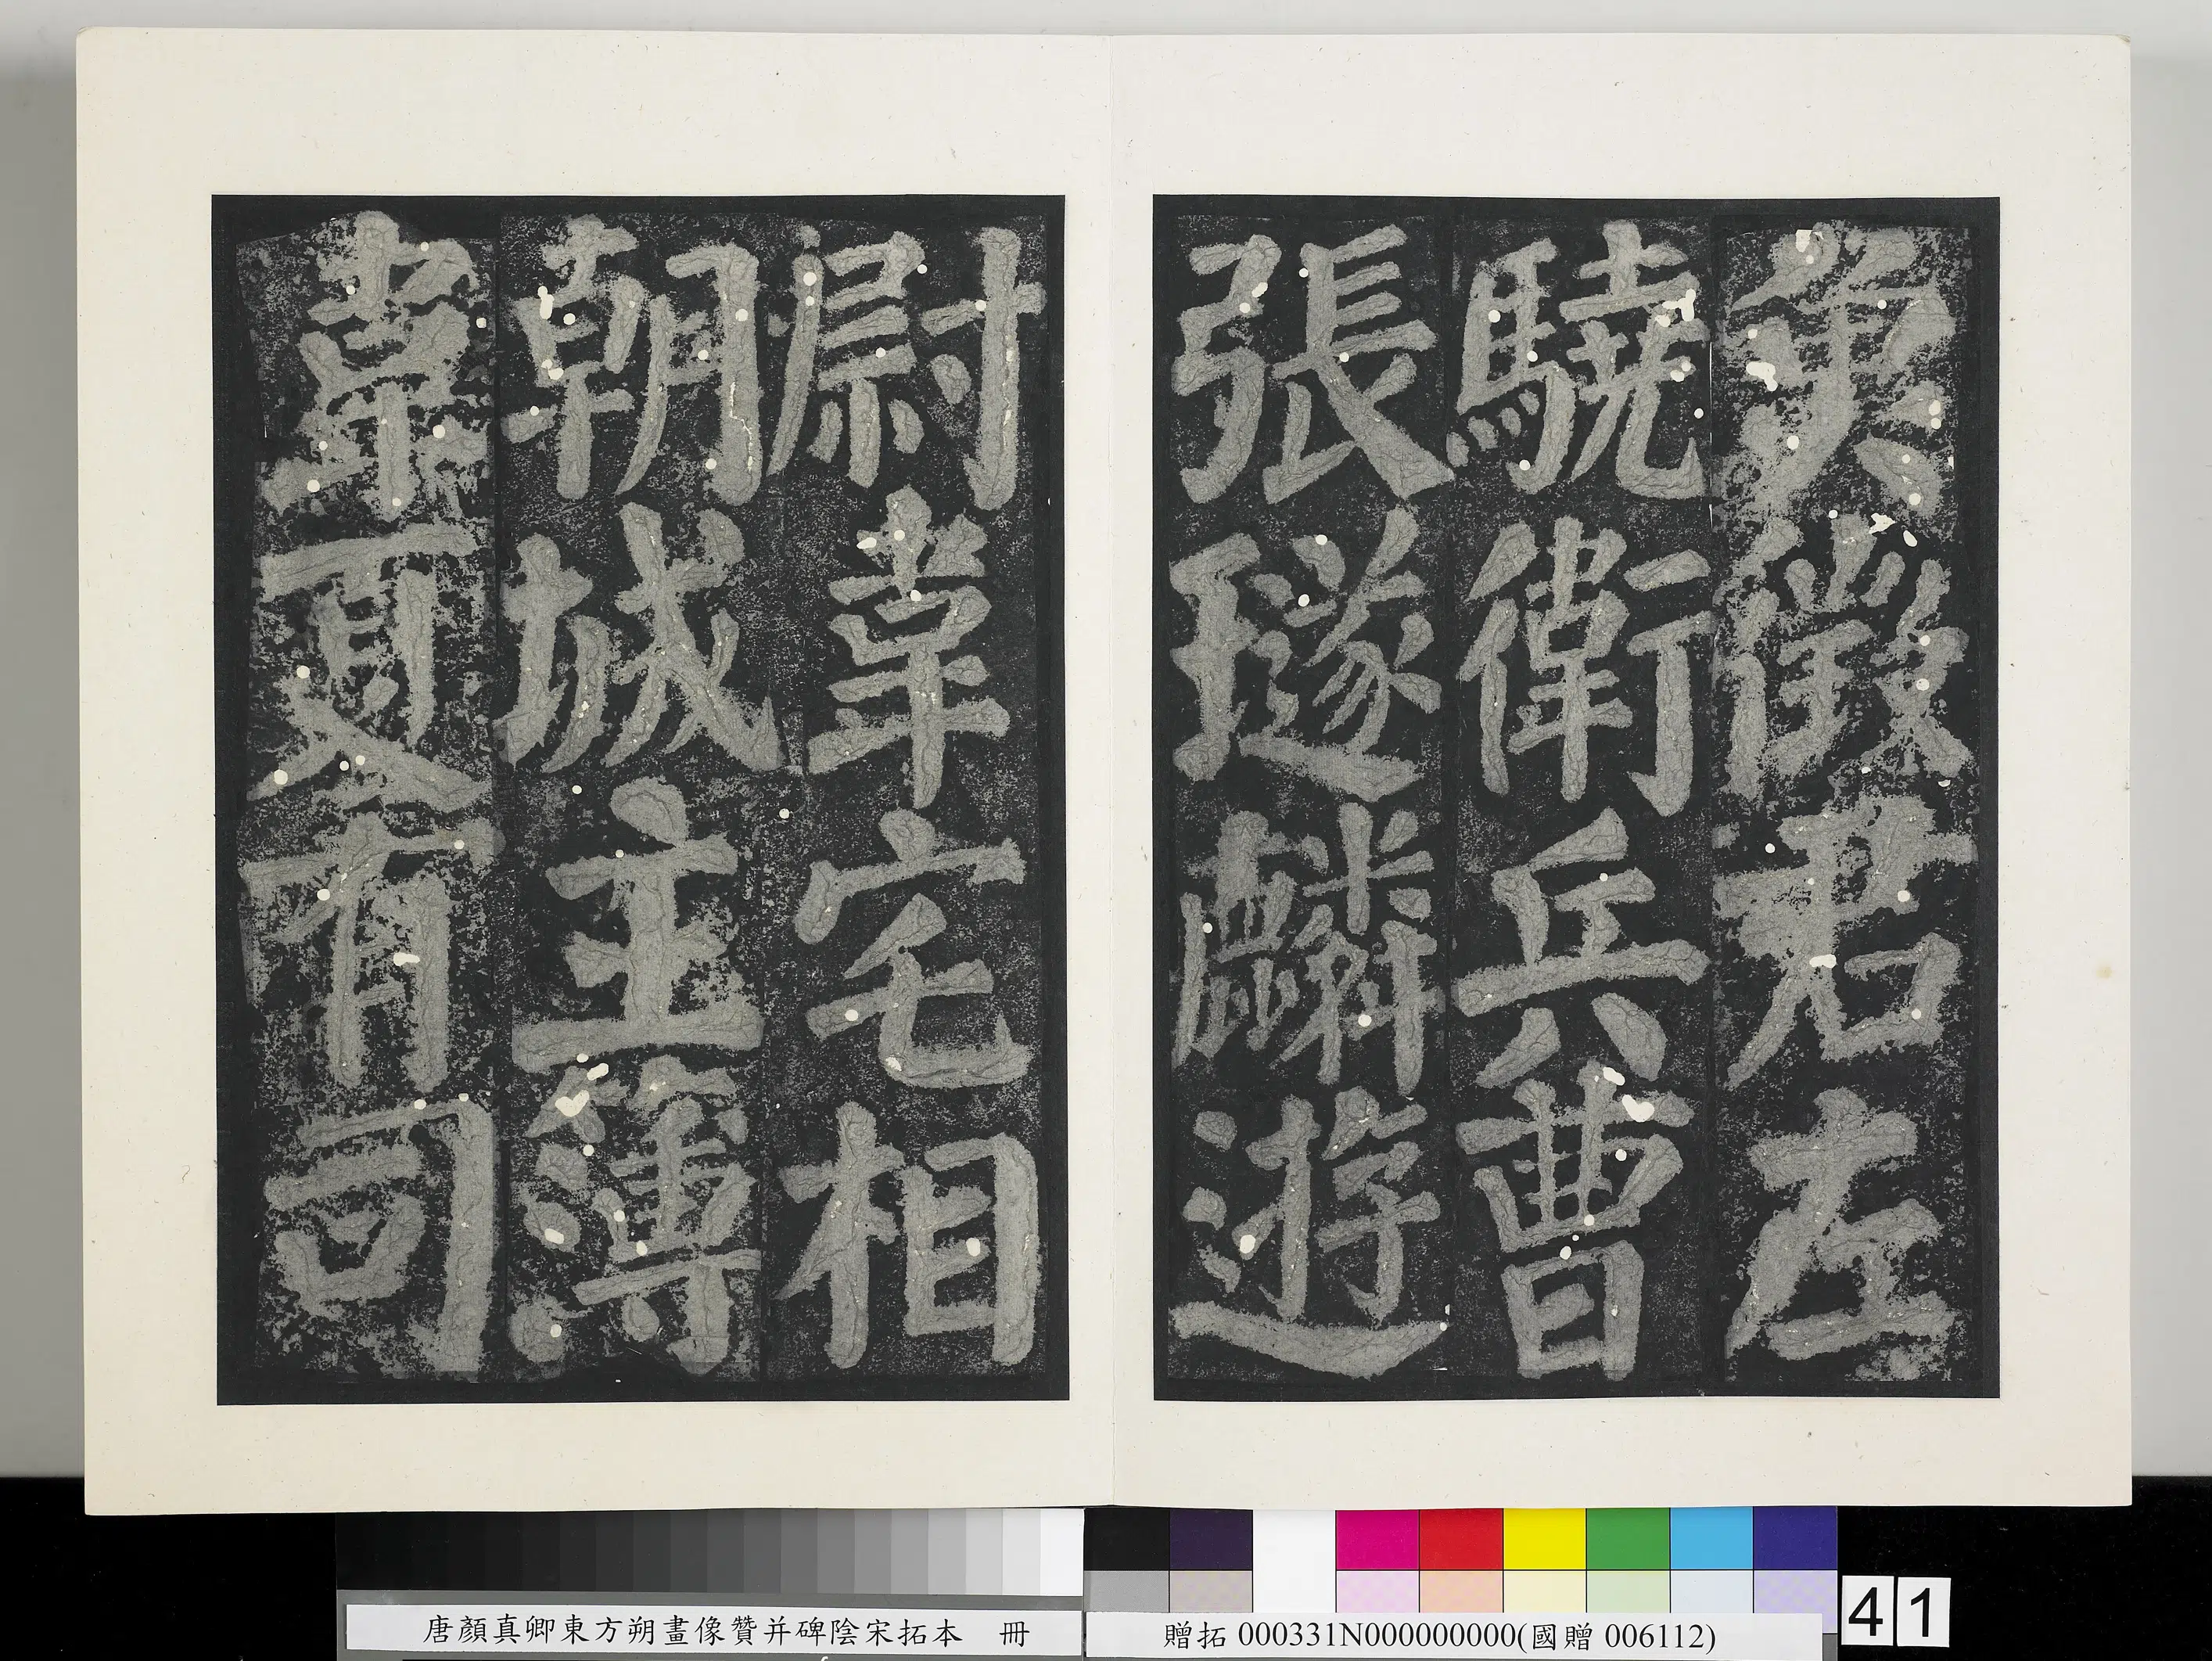 魚徵君左
驍衛兵曹
張璲麟遊
尉韋宅相
朝城主簿
韋夏有司
唐顏真卿東方朔畫像贊并碑陰宋拓本　冊
贈拓 000331N000000000(國贈 006112)
41